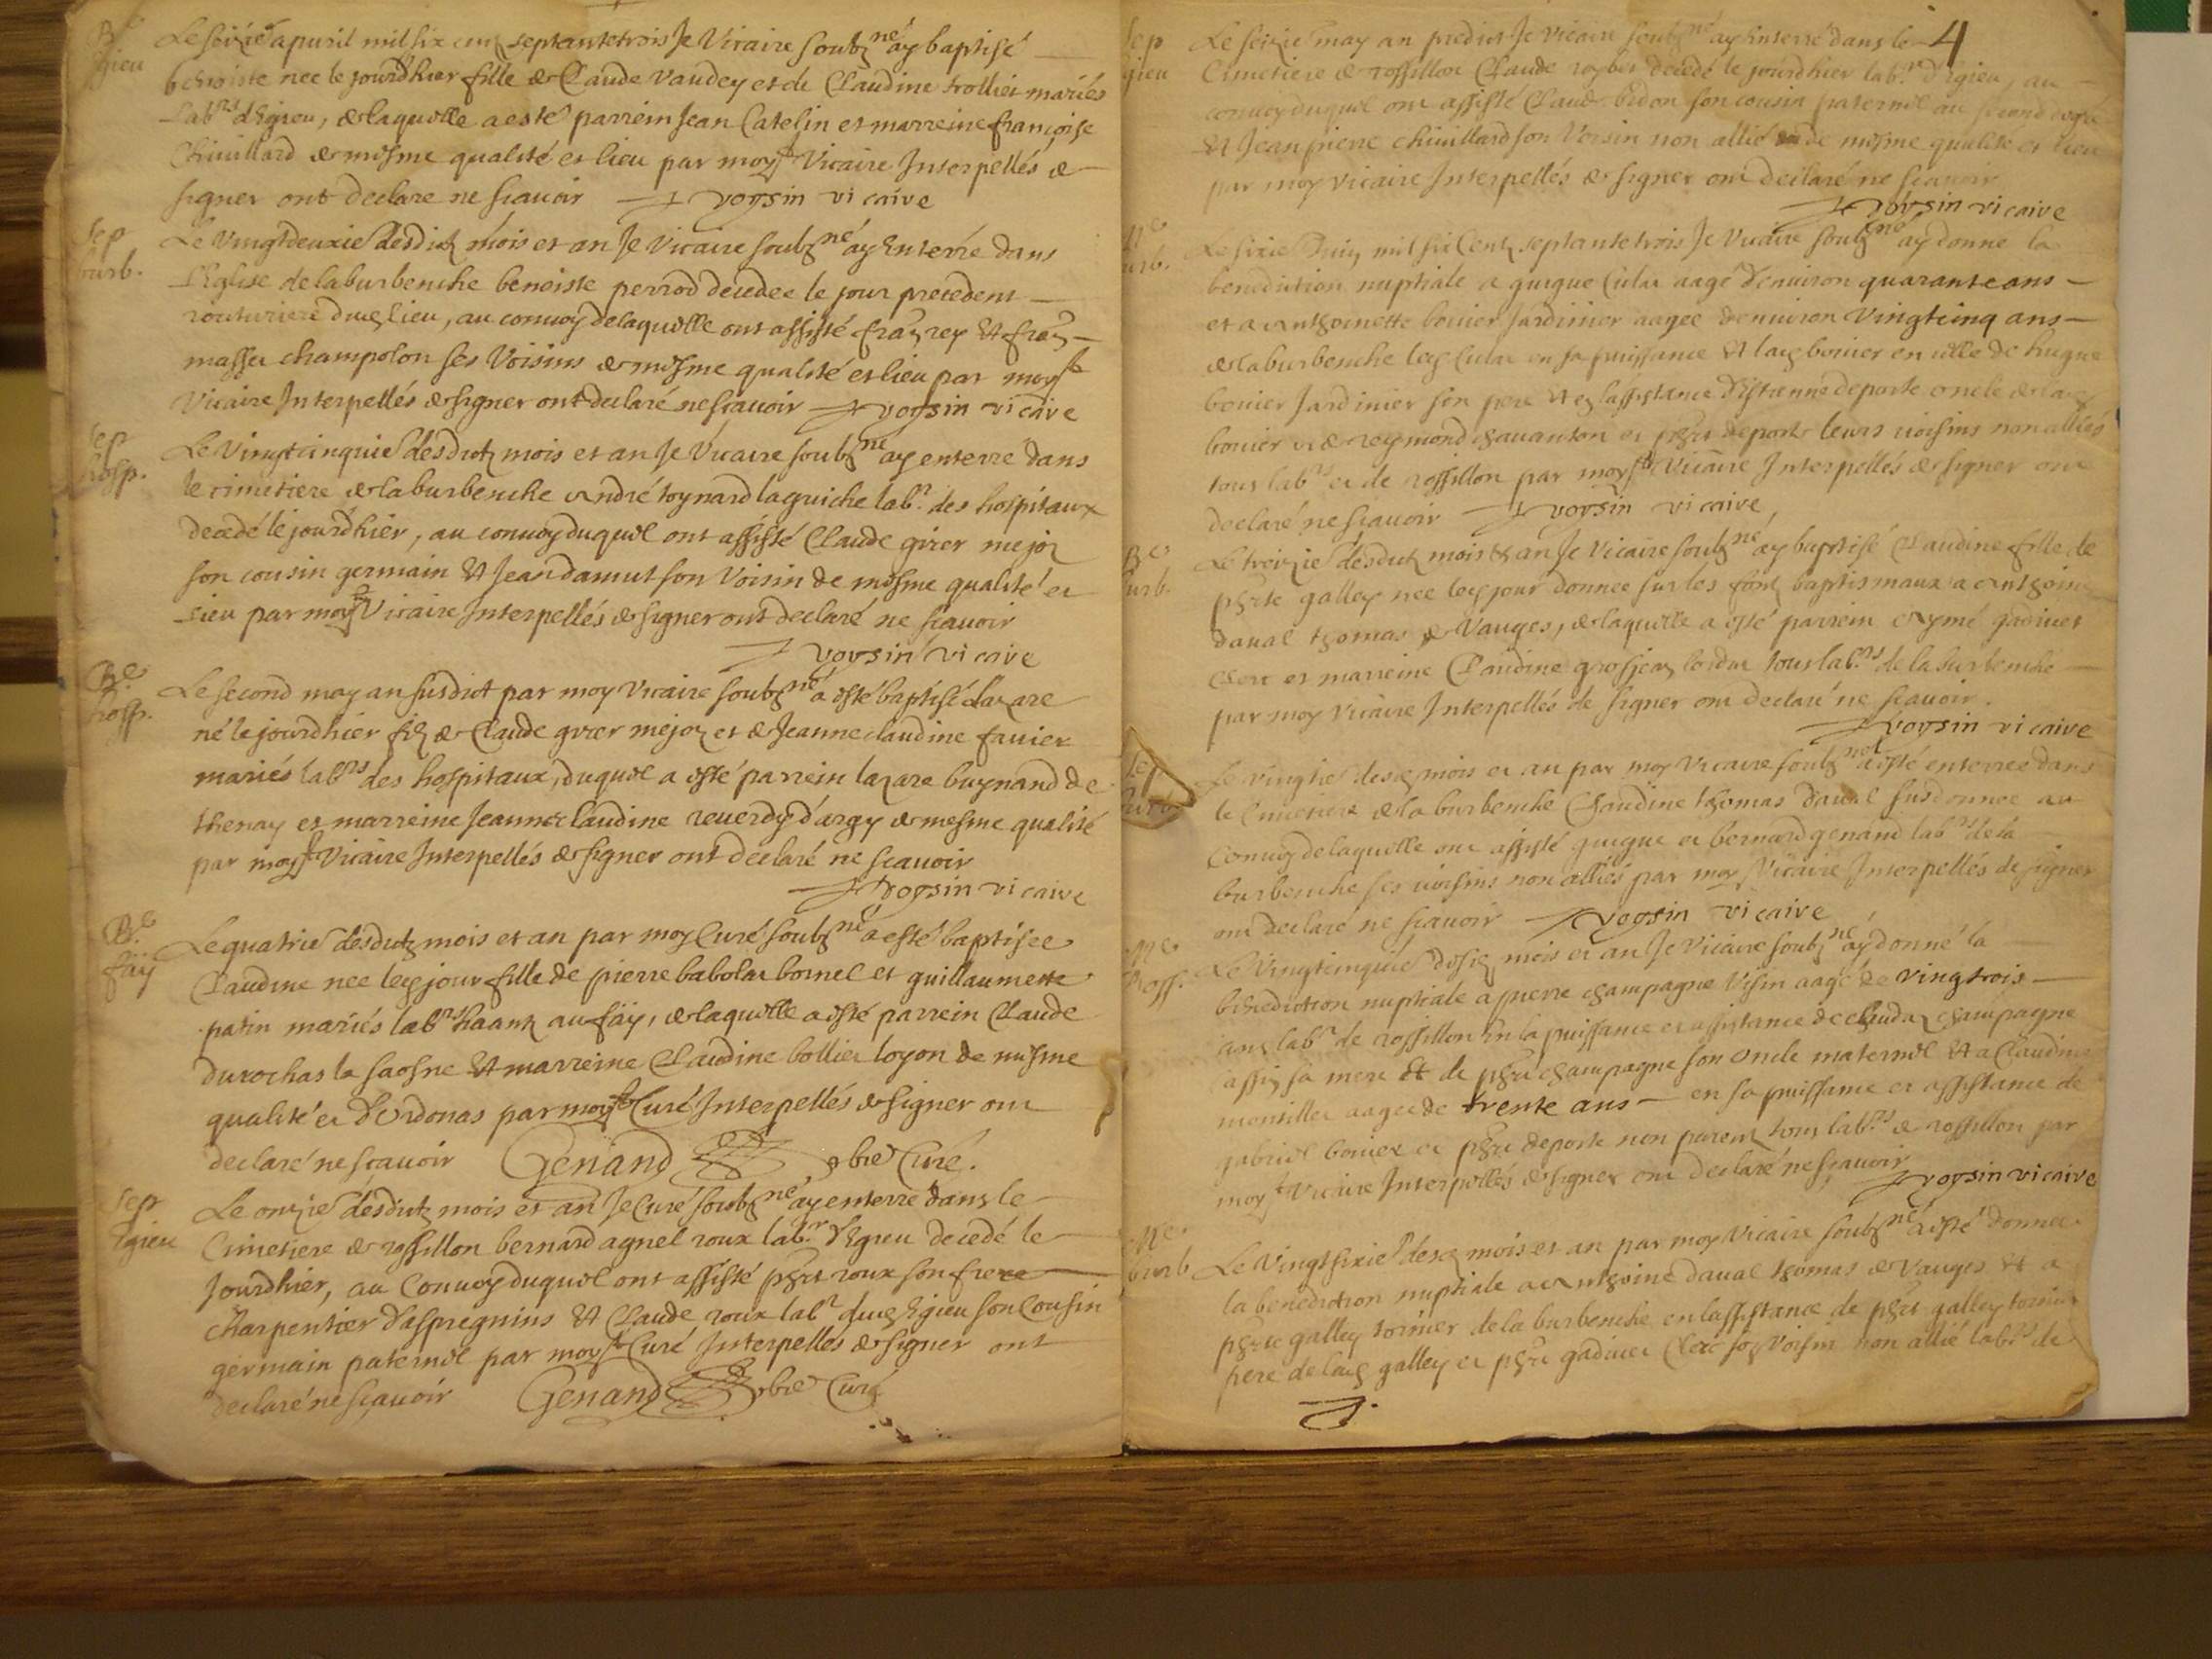 B.e Le seizie apuril mil six cens septantetrois Je Vicaire soubz.né ay baptisé
gieu benoiste nee le jourdhier fille de Claude Vaudey et de Claudine trollier mariés
Lab.rs d'Egieu, de laquelle a esté parrein Jean Catelin et marreine françoise
Chiuillard de mesme qualité et lieu par moy Vicaire Interpellés de
signer ont declare ne scauoir voysin vicaire
sep Le Vingtdeuxie desdictz mois et an Je Vicaire soubz.né ay Enterré dans
burb. L'Eglise de laburbenche benoiste perrod decedee le jour precedent
routuriere dud lieu, au conuoy de laquelle ont assisté rey et
massa champolon ses Voisins de mesme qualité et lieu par moy
Vicaire Interpellés de signer ont declaré ne scauoir voysin vicaire
sep Le Vingtcinquie desdictz mois et an Je Vicaire soubz.né ay enterre dans
hosp. le cimetiere de laburbenche André toynard laguiche lab.r des hospitaux
decedé le jourdhier, au conuoy duquel ont assisté Claude girer mejoz
son cousin germain et Jean damut son Voisin de mesme qualité et
Lieu par moy Vicaire Interpellés de signer ont declaré ne scauoir
voysin vicaire
B.e Le second may an susdict par moy Vicaire soubz.né a esté baptisé Lazare
hosp. né le jourdhier filz de Claude girer mejoz et de Jeanne claudine fauier
mariés lab.rs des hospitaux, duquel a esté parrein lazare buynand de
thenay et marreine Jeanne claudine reuerdy d'argy de mesme qualité
par moy Vicaire Interpellés de signer ont declaré ne scauoir
voysin vicaire
B.e Le quatrie desdictz mois et an par moy Curé soubz.né a esté baptisee
fäy Claudine nee led jour fille de pierre babolat bornel et guillaumette
patin mariés lab.rs au fäy, de laquelle a esté parrein Claude
durochas la saosne et marreine Claudine bollier loyon de mesme
qualité et d'Ordonas par moy Curé Interpellés de signer ont
declaré ne scauoir Genand pbre Curé.
sep Le onzie desdictz mois et an Je Curé soubz.né ay enterre dans le
Egieu Cimetiere de rossillon bernard agnel roux lab.r d'Egieu decedé le
Jourdhier, au Conuoy duquel ont assisté roux son frere
Charpentier d'aspregnins et Claude roux lab.r dud Egieu son Cousin
germain paternel par moy Curé Interpellés de signer ont
declaré ne scauoir Genand pbre Curé
4
sep Le seizie may an predict Je Vicaire soubz.né ay Enterré dans le
gieu Cimetiere de rossillon Claude roybet decedé le jourdhier lab.r d'Egieu, au
conuoy duquel ont assisté Claude bidon son cousin paternel au second degré
et Jean pierre chiuillard son Voisin non allié de mesme qualité et lieu
par moy Vicaire Interpellés de signer ont declaré ne scauoir
voysin vicaire
M.e Le sixie Juin mil six Centz septantetrois Je Vicaire soubz.né ay donne la
urb. benediction nuptiale a guigue Culat aagé d'enuiron quarante ans
et a anthoinette bouier Jardinier aagee d'enuiron Vingtcinq ans
de laburbenche led Culat en sa puissance et lad bouier en celle de hugue
bouier Jardinier son pere et en lassistance d'Estienne deporte oncle de lad
bouier et de reymond chauanton et deporte leurs voisins non alliés
tous lab.rs et de rossillon par moy Vicaire Interpellés de signer ont
declaré ne scauoir voysin vicaire
B.e Le treizie desdictz mois et an Je Vicaire soubz.né ay baptisé Claudine fille de
urb. galley nee led jour donnee sur les fontz baptismaux a anthoine
daual thomas de Vauges, de laquelle a esté parrein aymé gadiuet
Clerc et marreine Claudine grosjean tous lab.rs de la burbenche
par moy Vicaire Interpellés de signer ont declaré ne scauoir.
voysin vicaire
Le Vingtie desd mois et an par moy Vicaire soubz.né a esté enterree dans
le Cimetiere de la burbenche Claudine thomas daual susdonnee au
Conuoy de laquelle ont assisté guigue et bernard genand lab.rs de la
burbenche ses voisins non alliés par moy Vicaire Interpellés de signer
ont declaré ne scauoir voysin vicaire
M.e Le Vingtcinquie desd mois et an Je Vicaire soubz.né ay donné la
Ross. benediction nuptiale a pierre champagne Visin aagé de vingtrois
ans lab.r de rossillon En la puissance et assistance de champagne
sa mere et de champagne son Oncle maternel et a Claudine
aagee de trente ans en sa puissance et assistance de
gabriel bouier et deporte non parens tous lab.rs de rossillon par
moy Vicaire Interpellés de signer ont declaré ne scauoir
voysin vicaire
M.e Le Vingtsixie desd mois et an par moy Vicaire soubz.né a esté donnee
burb la benediction nuptiale a anthoine daual thomas de Vauges et a
galley tornier de la burbenche en lassistance de galley tornier
pere de lad galley et gadiuet Clerc son Voisin non allié lab.rs de